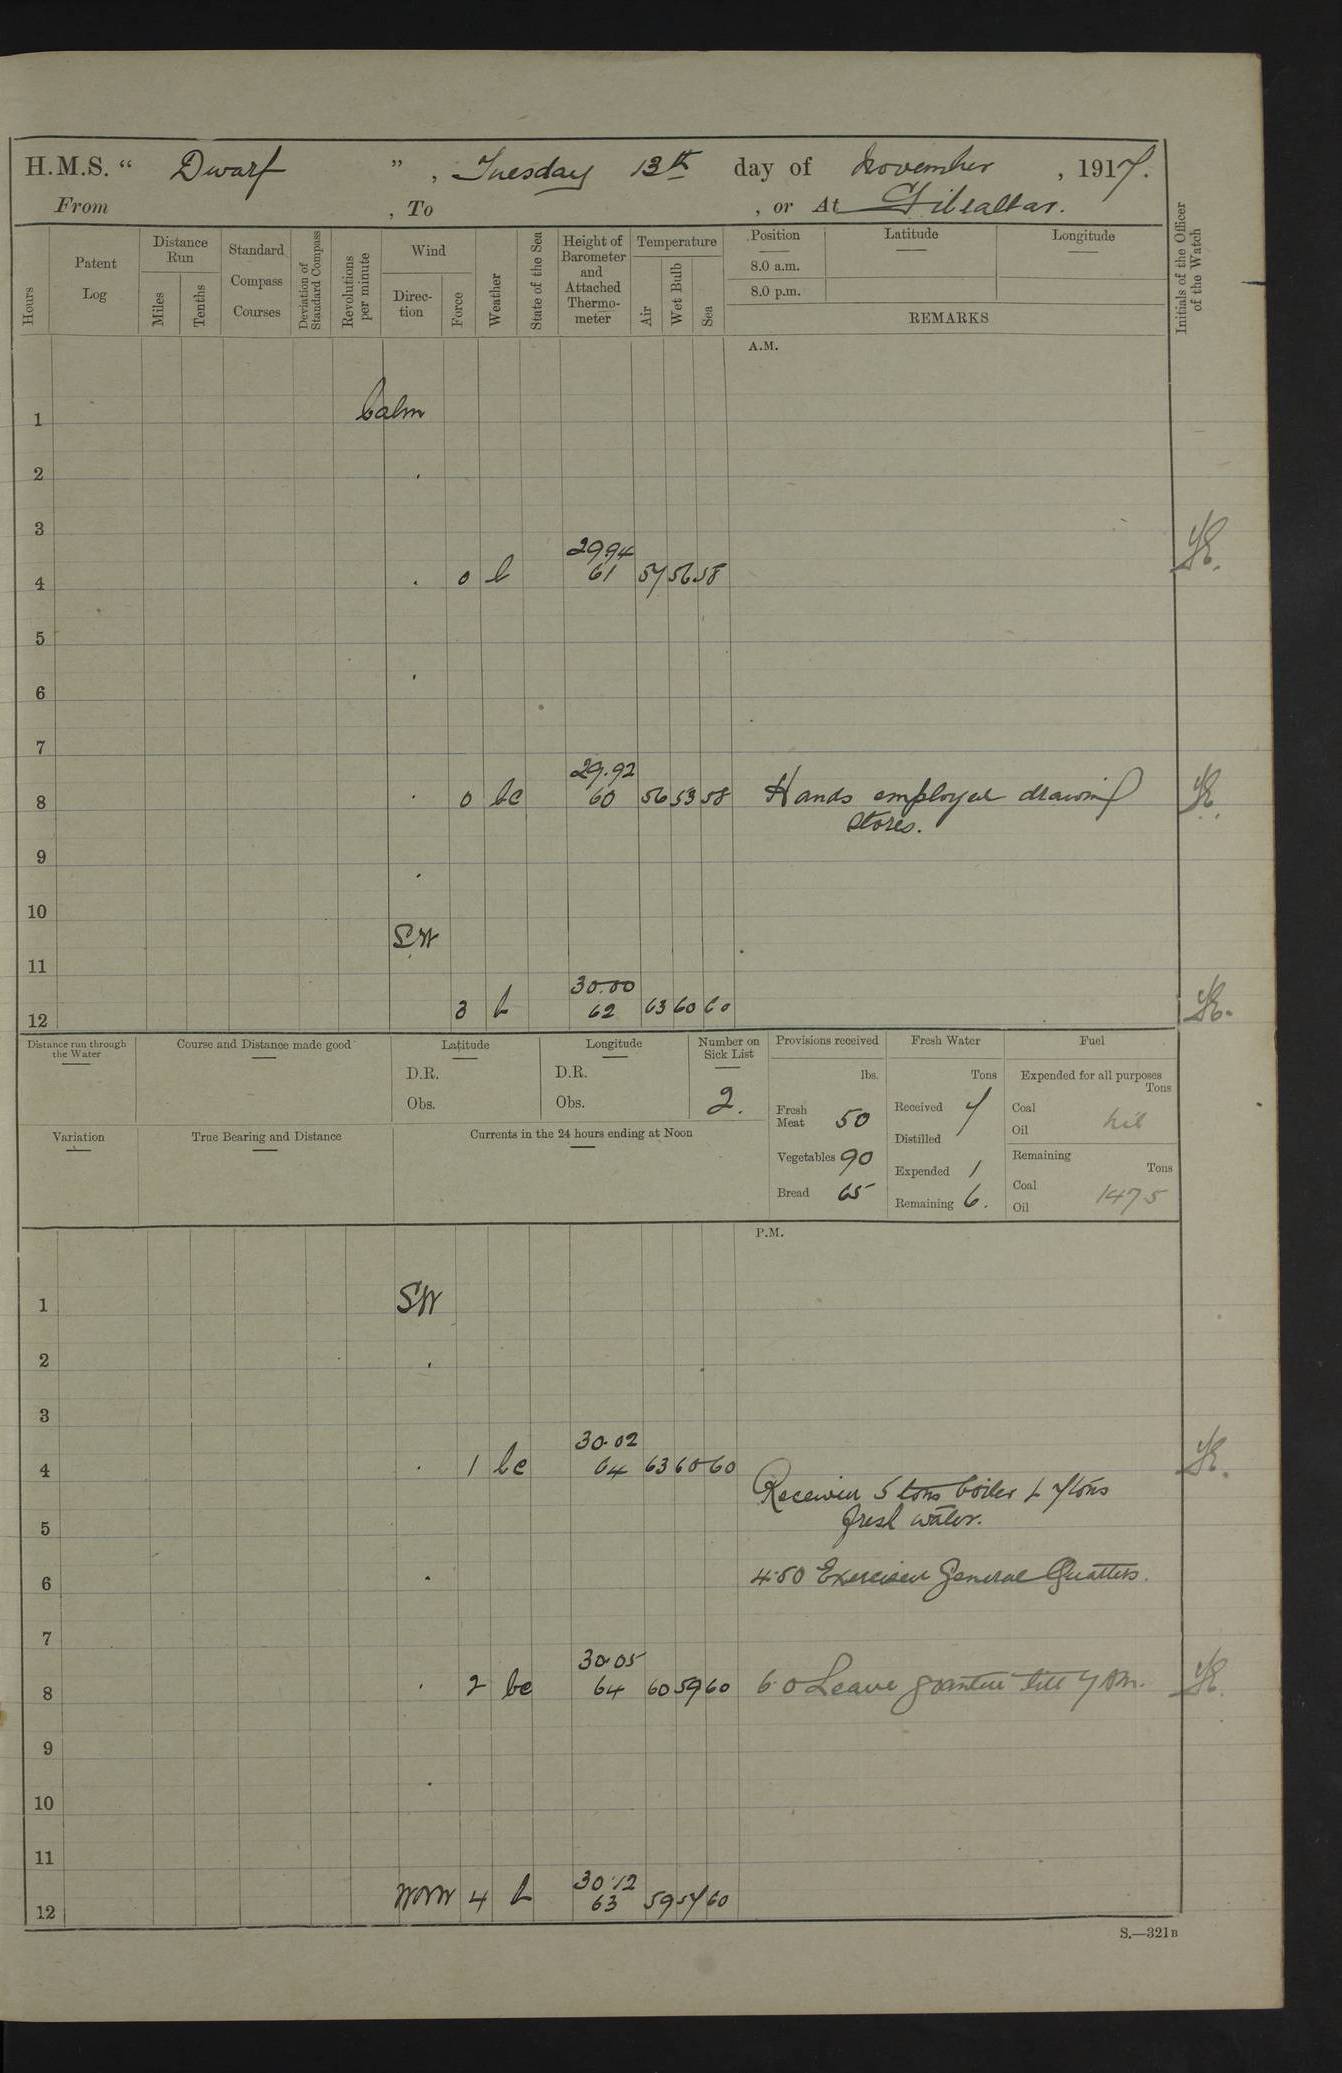 H.M.S. “ Dwarf ”, Tuesday 13th day of November, 1917.
From , To , or At Gibraltar.
Hours
Patent Log
Distance Run
Miles
Tenths
Standard Compass Courses
Deviation of Standard Compass
Revolutions per minute
Wind
Direc-tion
Force
Weather
State of the Sea
Height of Barometer and Attached Thermo-meter
Temperature
Air
Wet Bulb
Sea
Position
8.0 a.m.
8.0 p.m.
Latitude
Longitude
REMARKS
Initials of the Officer of the Watch
A.M.
1 Calm
2 .
3
29.94
4 . 0 b 61 57 56 58
5
6 .
7
29.92
8 . 0 bc 60 56 53 58 Hands employed drawing
stores.
9 .
10
SW
11
30.00
12 3 b 62 63 60 60
Distance run through the Water
Course and Distance made good
Latitude
D.R.
Obs.
Longitude
D.R.
Obs.
Number on Sick List
2.
Variation
True Bearing and Distance
Currents in the 24 hours ending at Noon
Provisions received
lbs.
Fresh Meat 50
Vegetables 90
Bread 65
Fresh Water
Tons
Received 7
Distilled
Expended 1
Remaining 6.
Fuel
Expended for all purposes
Tons
Coal
Oil
nil
Remaining
Tons
Coal
Oil
147.5
P.M.
1 SW
2 .
3
30.02
4 . 1 bc 64 63 60 60
Received 5 tons boiler & 7 tons
fresh water.
5
6 . 4.50 Exercised General Quarters.
7
30.05
8 . 2 bc 64 60 59 60 6.0 Leave granted till 7 AM.
9
10 .
11
30.12
12 WNW 4 b 63 59 57 60
S.—321B